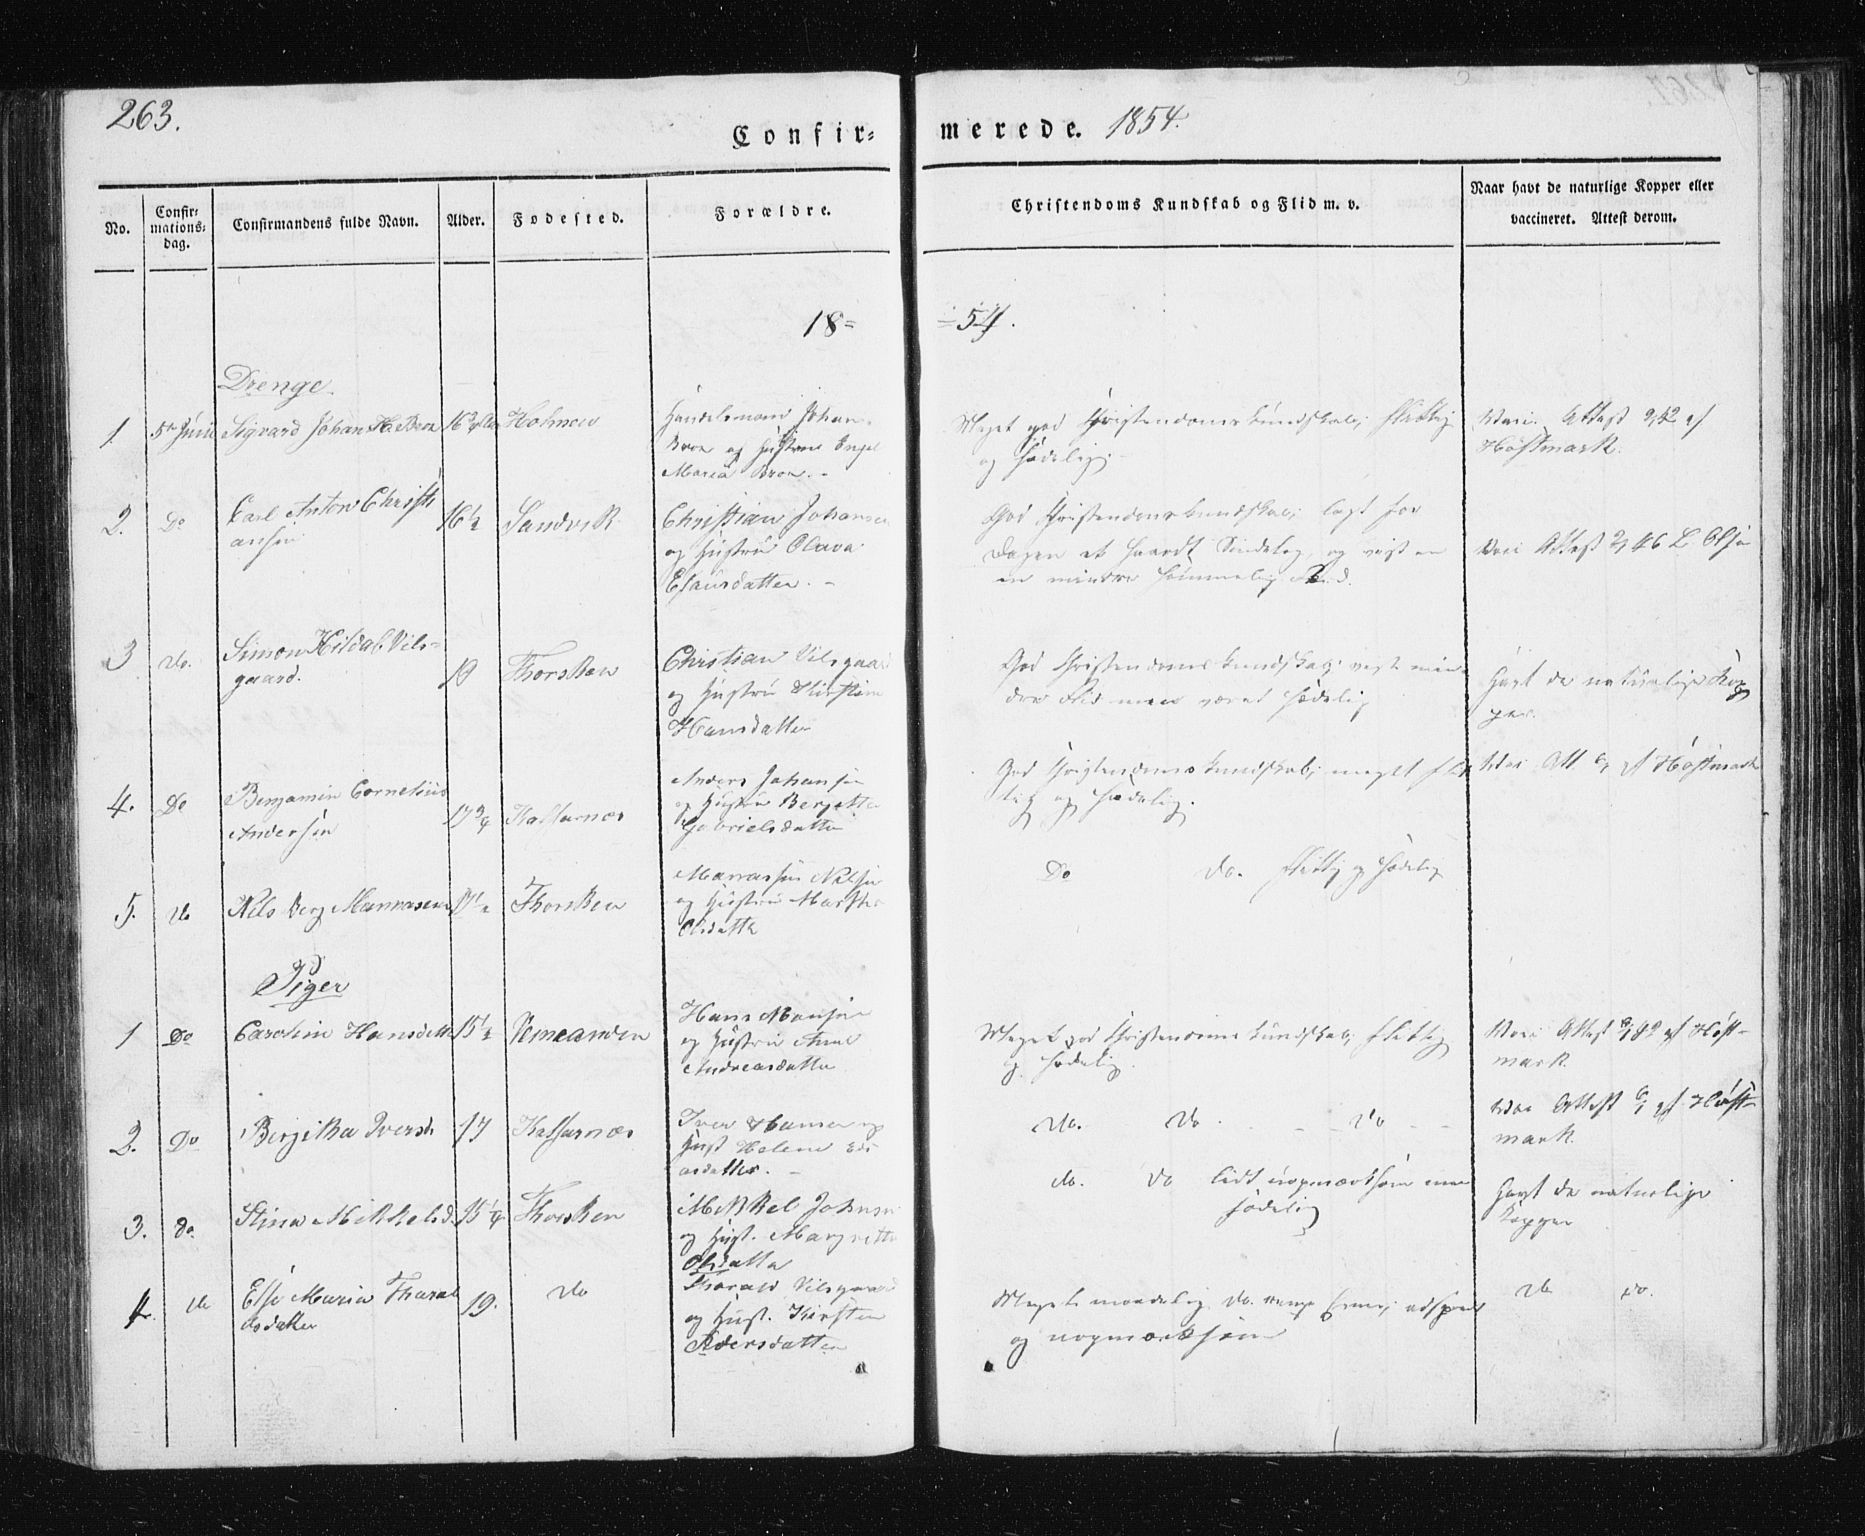 263.
Confir= merede. 1854.
No.
Confir=
mations=
dag.
Confirmandens fulde Navn.
Alder.
Fødested.
Forældre.
Christendoms Kundskab og Flid m. v.
Naar havt de naturlige Kopper eller
vaccineret. Attest derom.
18= =54.
Drenge.
1. 5te Juni Sigvard Johan H. Broe 16 3/4 Holmen
Handelsmand Johan
Broe og Hustrue Engel
Maria Broe. -
Meget god Christendoms kundskab; flittig
og sædelig.
Vacc. Attest af
Høstmark.
2. Do Carl Anton Christi
ansen 16 1/2 Sandvik
Christian Johansen
og Hustrue Olava
Esaiasdatter. -
God Christendoms kundskab; lagt for
Dagen et haardt Sindelag, og vist en
en mindre sømmelig Flid.
Vacc Attest 46 L. Olsen
3 do. Simon Hildal Vils=
gaard. 19 Thorsken
Christian Vilsgaard
og Hustrue Kirstine
Hansdatter
God Christendoms kundskab; vist min
dre Flid men været sædelig
Havt de naturlige Kop
per.
4. Do Benjamin Cornelius
Andersen 17 3/4 Kaffarnes
Anders Johansen
og Hustrue Bergitte
Gabrielsdatter
God Christendoms kundskab; meget flit
tig og sædelig.
Vacc Att af Høstmark
5. do Nils Berg Manasen 17 1/2 Thorsken
Manasse Nilsen
og Hustrue Marthe
Olsdatter
Do do. flittig og sædelig
Piger
1 Do Caroline Hansdatter 15 1/2
Hans Monsen
og Hustrue Anne
Andreasdatter
Meget god Christendoms kundskab; flittig
og sædelig.
Vacc Attest af Høst=
mark.
2. Do Bergitha Iversd. 17 Kaffarnes
Iver Hansen og
Hust Helene
asdatter. -
do. do do
Vacc Attest af Høst=
mark.
3. do Stina Mikkelsd. 15 1/4 Thorsken
Mikkel Johnsen
og Hust. Margrethe
Olsdatter
do. do lidt uopmærksom men
sædelig
Havt de naturlige
Kopper
4. do Else Maria Tharal
dsdatter 19. do
Tharald Vilsgaard
og Hust. Kirsten
Pedersdatter
Meget maadelig do. adspredt
og uopmærksom
do do.